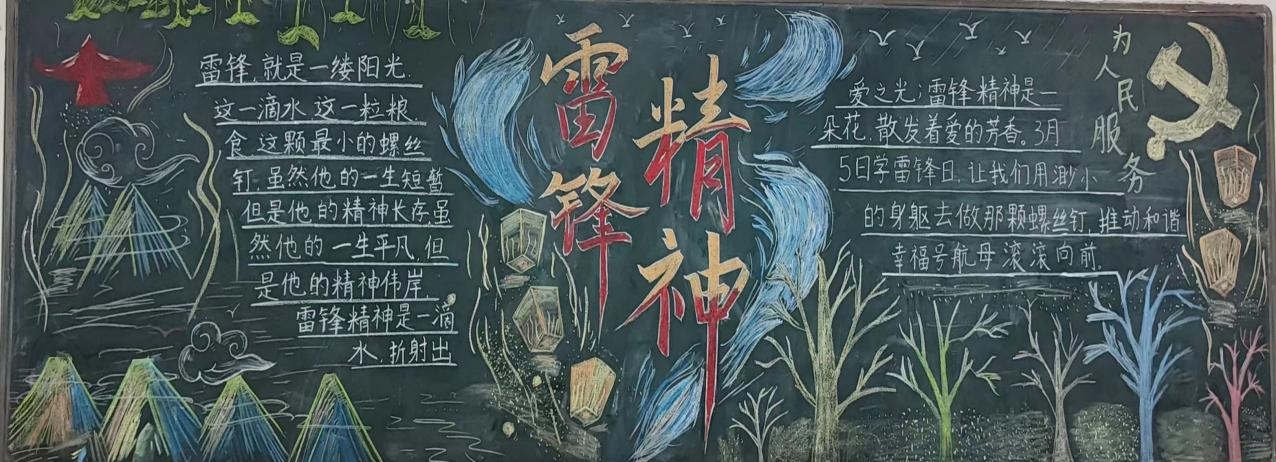 雷锋,就是一缕阳光.
这一滴水,这一粒粮
食,这颗最小的螺丝
钉,虽然他的一生短暂
但是他的精神长存,虽
然他的一生平凡,但
是他的精神伟岸
雷锋精神是一滴
水,折射出
雷锋
精神
爱之光;雷锋精神是一
朵花,散发着爱的芳香。3月
5日学雷锋日,让我们用渺小
的身躯去做那颗螺丝钉,推动和谐
幸福号航母滚滚向前
为人民服务